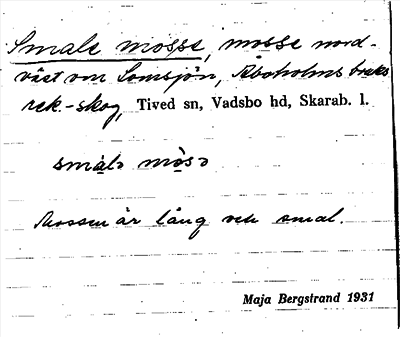 Smale mosse, mosse nord-
väst om Lomsjön, Åboholms bruks
rek.-skog, Tived sn, Vadsbo hd, Skarab. l.
smalə mosə
Mossen är lång och smal.
Maja Bergstrand 1931